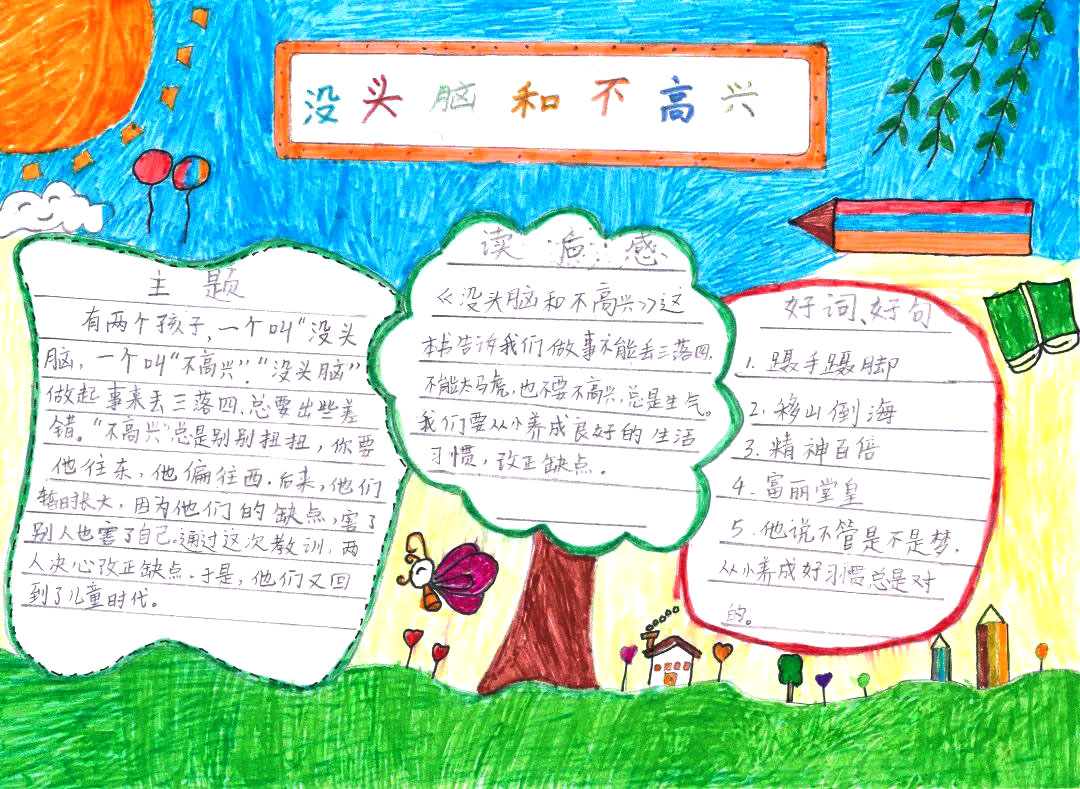 没头脑和不高兴
主题
有两个孩子,一个叫“没头
脑,一个叫“不高兴”.“没头脑”
做起事来丢三落四、总要出些差
错。“不高兴”总是别别扭扭,你要
他往东,他偏往西.后来,他们
暂时长大,因为他们的缺点,害了
别人也害了自己.通过这次教训,两
人决心改正缺点.于是,他们又回
到了儿童时代。
读后感
《没头脑和不高兴》这
本书告诉我们做事不能丢三落四.
不能太马虎,也不要不高兴,总是生气。
我们要从小养成良好的生活
习惯,改正缺点.
好词、好句
1.蹑手蹑脚
2.移山倒海
3.精神百倍
4.富丽堂皇
5.他说不管是不是梦.
从小养成好习惯总是对
的。